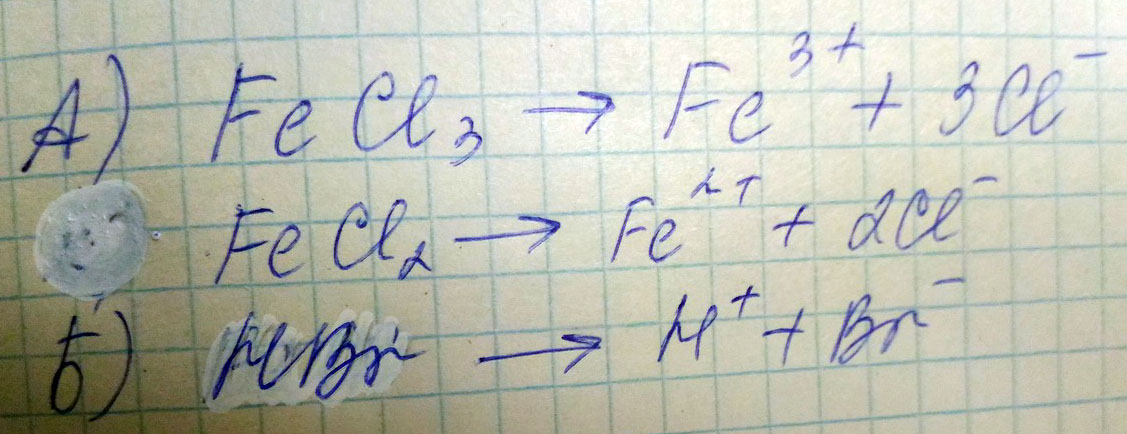 А) FeCl₃ → Fe³⁺ + 3Cl⁻
FeCl₂ → Fe²⁺ + 2Cl⁻
Б) HBr → H⁺ + Br⁻